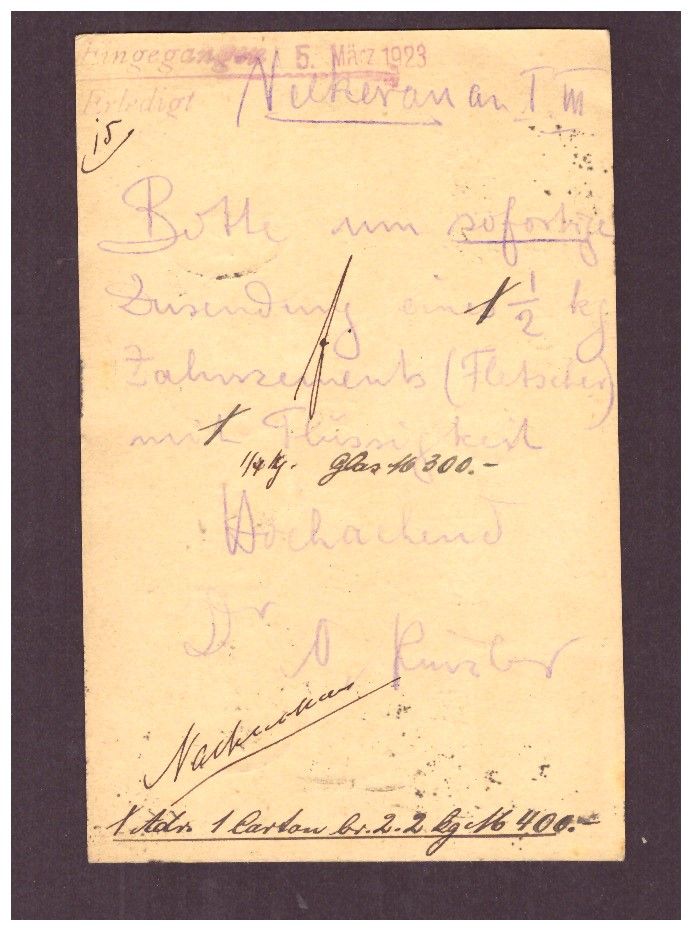 Eingegangen 5. März 1923
Erledigt
15
an I III
Bitte um sofortige
Zusendung eines 1/2 kg
Zahnzements (Fletscher)
mit Flüssigkeit
1/4 kg. Glas M 300.-
Hochachtend
Dr
Nachnahme
1 Adr. 1 Carton br. 2.2 kg M 400.-